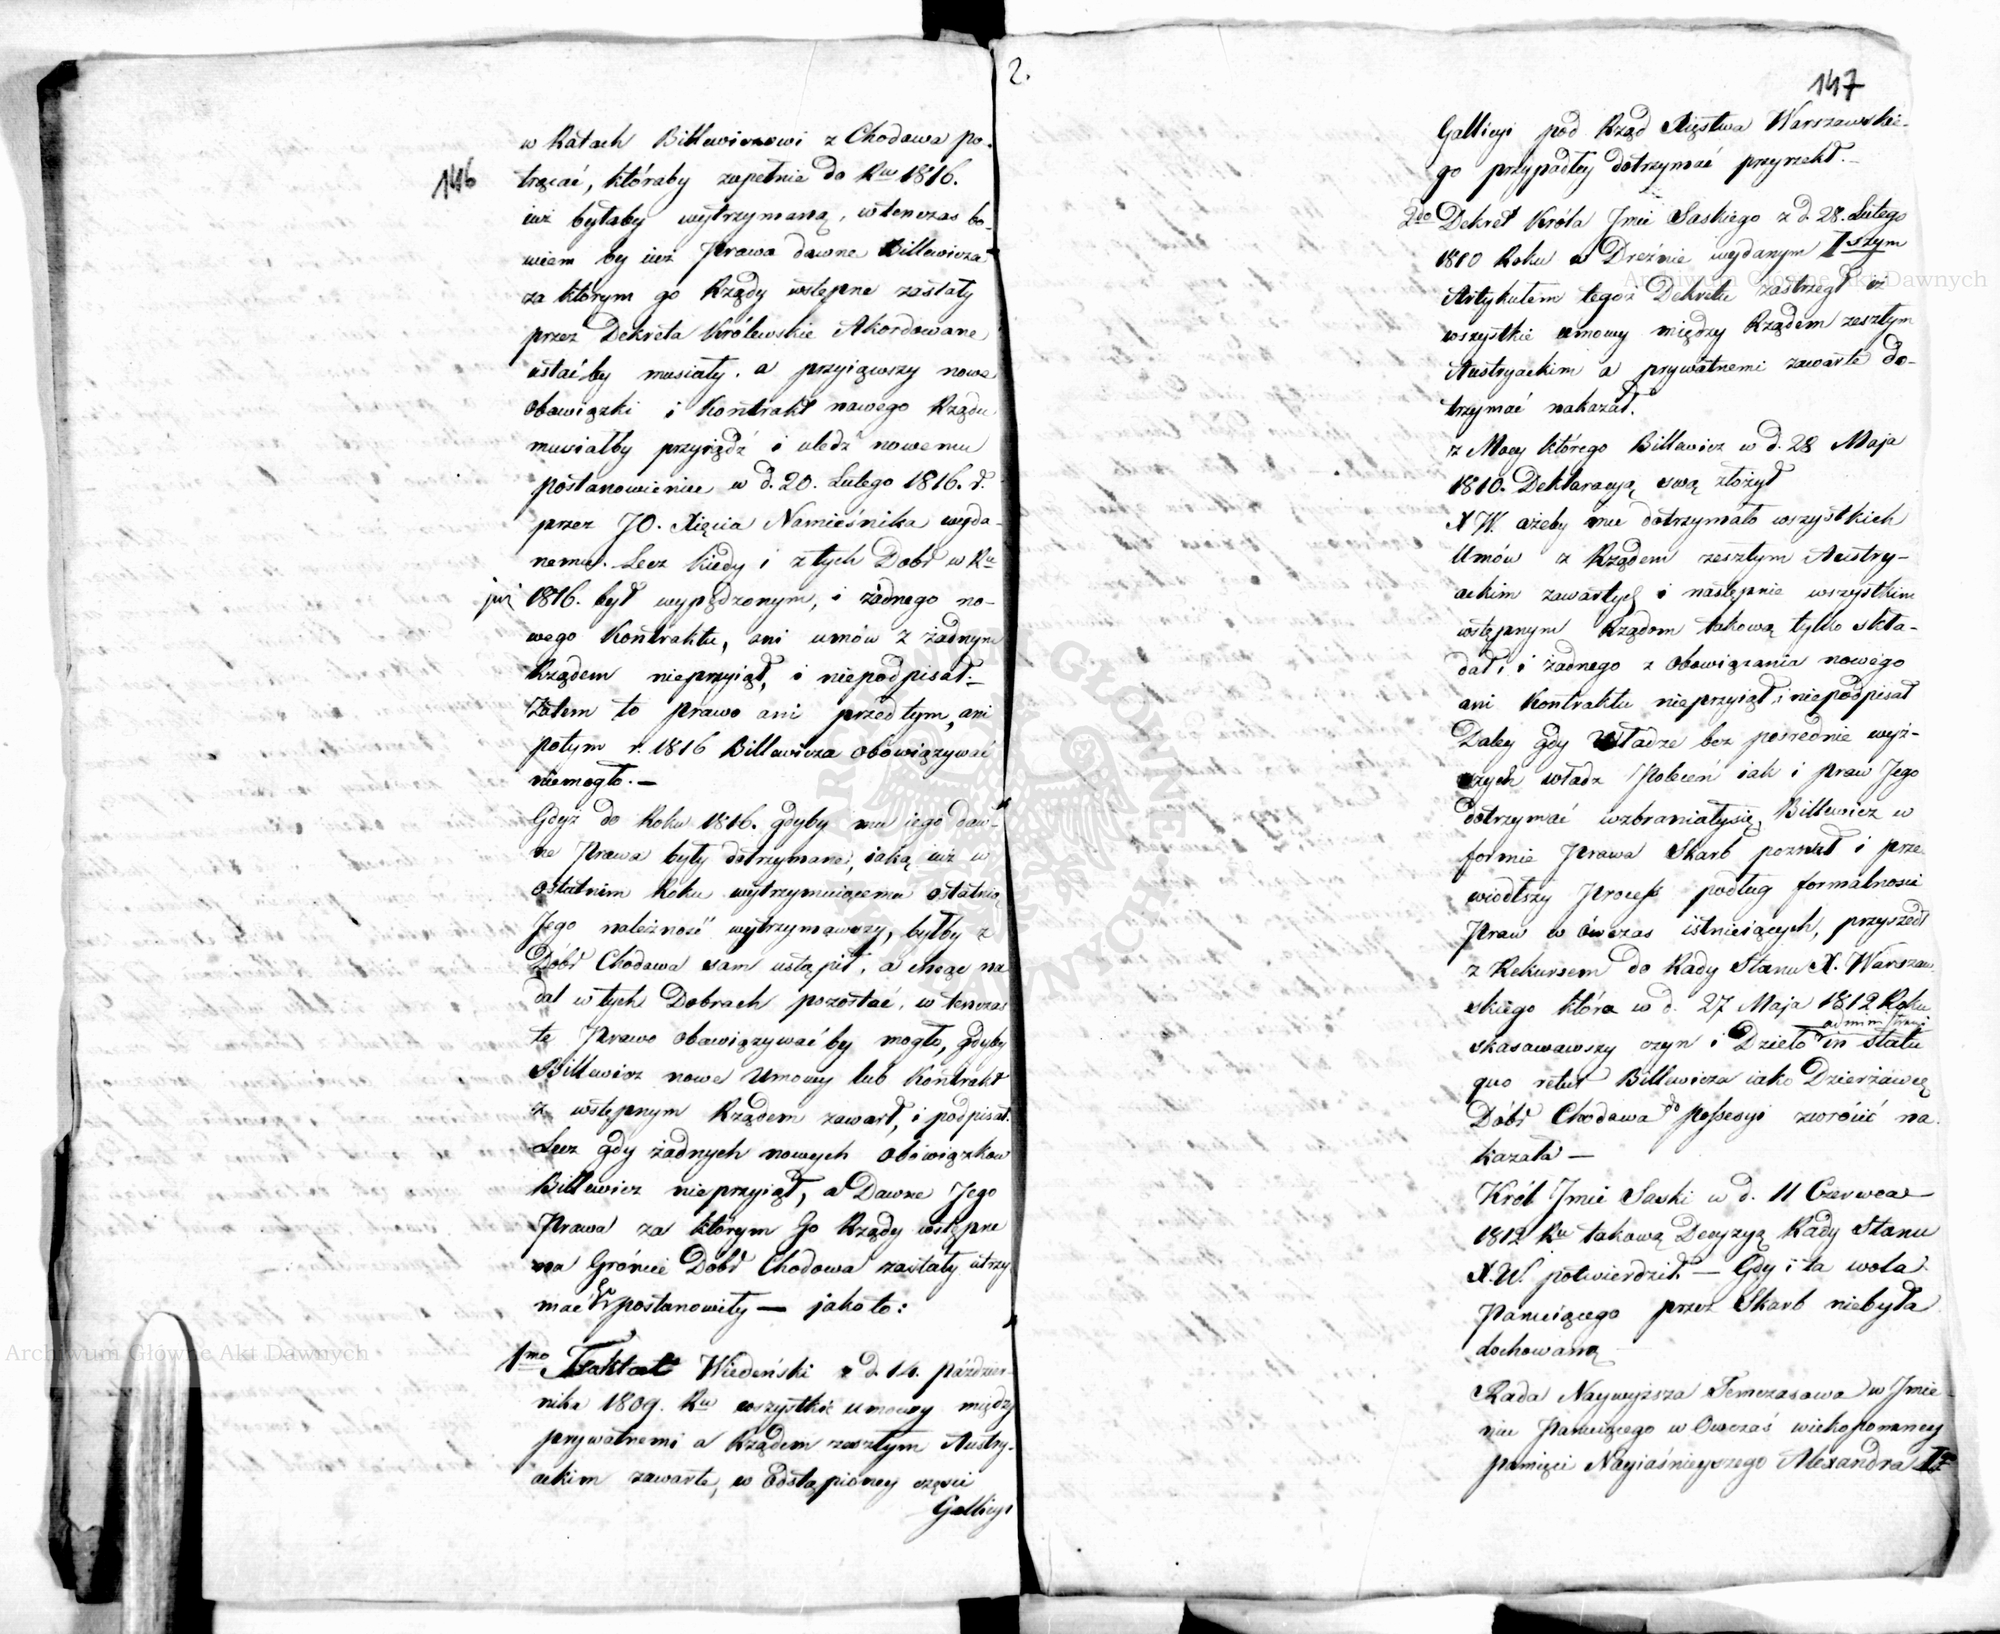 2.
146
w Ratach Billewiczowi z Chodawa po-
trącać, któraby zupełnie do Ru 1816.
iuż byłaby wytrzymaną, wtenczas bo-
wiem by iuż Prawa dawne Billewicza
za którym go Rządy wstępne zastały
przez Dekreta Królewskie Akordowane
ustać by musiały, a przyiąwszy nowe
obowiązki i Kontrakt nowego Rządu
musiałby przyiąść i uledz nowemu
postanowieniu w d. 20. Lutego 1816. r.
przez JO. Xięcia Namieśnika wyda-
nemu. Lecz kiedy i z tych Dobr w Ru
już 1816. był wypędzonym, i żadnego no-
wego Kontraktu, ani umów z żadnym
Rządem nieprzyiął, i niepodpisał.-
Zatem to Prawo ani przed tym, ani
potym r. 1816 Billewicza obowiązywać
niemogło. —
Gdyż do Roku 1816. gdyby mu iego daw-
ne Prawa były dotrzymane, iaką iuż w
ostatnim Roku wytrzymuiącemu ostatnią
Jego należność wytrzymawszy, byłby z
Dóbr Chodawa sam ustąpił, a chcąc na
dal w tych Dobrach pozostać, w tenczas
te Prawo obowiązywać by mogło, gdyby
Billewicz nowe Umowy lub Kontrakt
z wstępnym Rządem zawarł, i podpisał.
Lecz gdy żadnych nowych obowiązkow
Billewicz nieprzyiął, a Dawne Jego
Prawa za którym Go Rządy wstępne
na Gróncie Dobr Chodowa zastały utrzy
mać postanowiły — jako to:
1mo Traktat Wiedeński z d. 14. paździer-
nika 1809. Ru wszystkie umowy między
prywatnemi a Rządem zeszłym Austry-
ackim zawarte, w odstąpioney częsci
Gallicyi
147
Gallicyi pod Rząd Xięstwa Warszawskie-
go przypadłey dotrzymać przyrzekł.-
2do Dekret Króla Jmci Saskiego z d. 28. Lutego
1810 Roku w Dreźnie wydanym Iszym
Artykułem tegoż Dekretu zastrzegł iż
wszystkie umowy między Rządem zeszłym
Austryackim a prywatnemi zawarte do-
trzymać nakazał.
z Mocy którego Billewicz w d. 28 Maja
1810. Deklaracyą swą złożył
X W. ażeby mu dotrzymało wszystkich
Umów z Rządem zeszłym Austry-
ackim zawartych i następnie wszystkim
wstępnym Rządom takową tylko skła-
dał, i żadnego z obowiązania nowego
ani Kontraktu nieprzyiął, i niepodpisał
Daley gdy Władze bez pośrednie wyż-
szych władz Poleceń iak i praw Jego
dotrzymać wzbraniałysię, Billewicz w
formie Prawa Skarb pozwał i prze-
wiodłszy Process podług formalnosci
Praw w ówczas istnieiących, przyszedł
z Rekursem do Rady Stanu X. Warszaw-
skiego która w d. 27 Maja 1812 Roku
skasowawszy czyn i Dzieło administracyi in statu
quo retur Billewicza iako Dzierżawcę
Dóbr Chodawa do Possessyi zwrócić na-
kazała —
Król Jmci Saski w d. 11 Czerwca
1812 Ru takową Decyzyą Rady Stanu
X. W. potwierdził. — Gdy i ta wola
Panuiącego przez Skarb niebyła
dochowaną —
Rada Naywyższa Temczasowa w Jmie-
niu Panuiącego w Owczaś wiekopomney
pamięci Nayiaśnieyszego Alexandra Igo